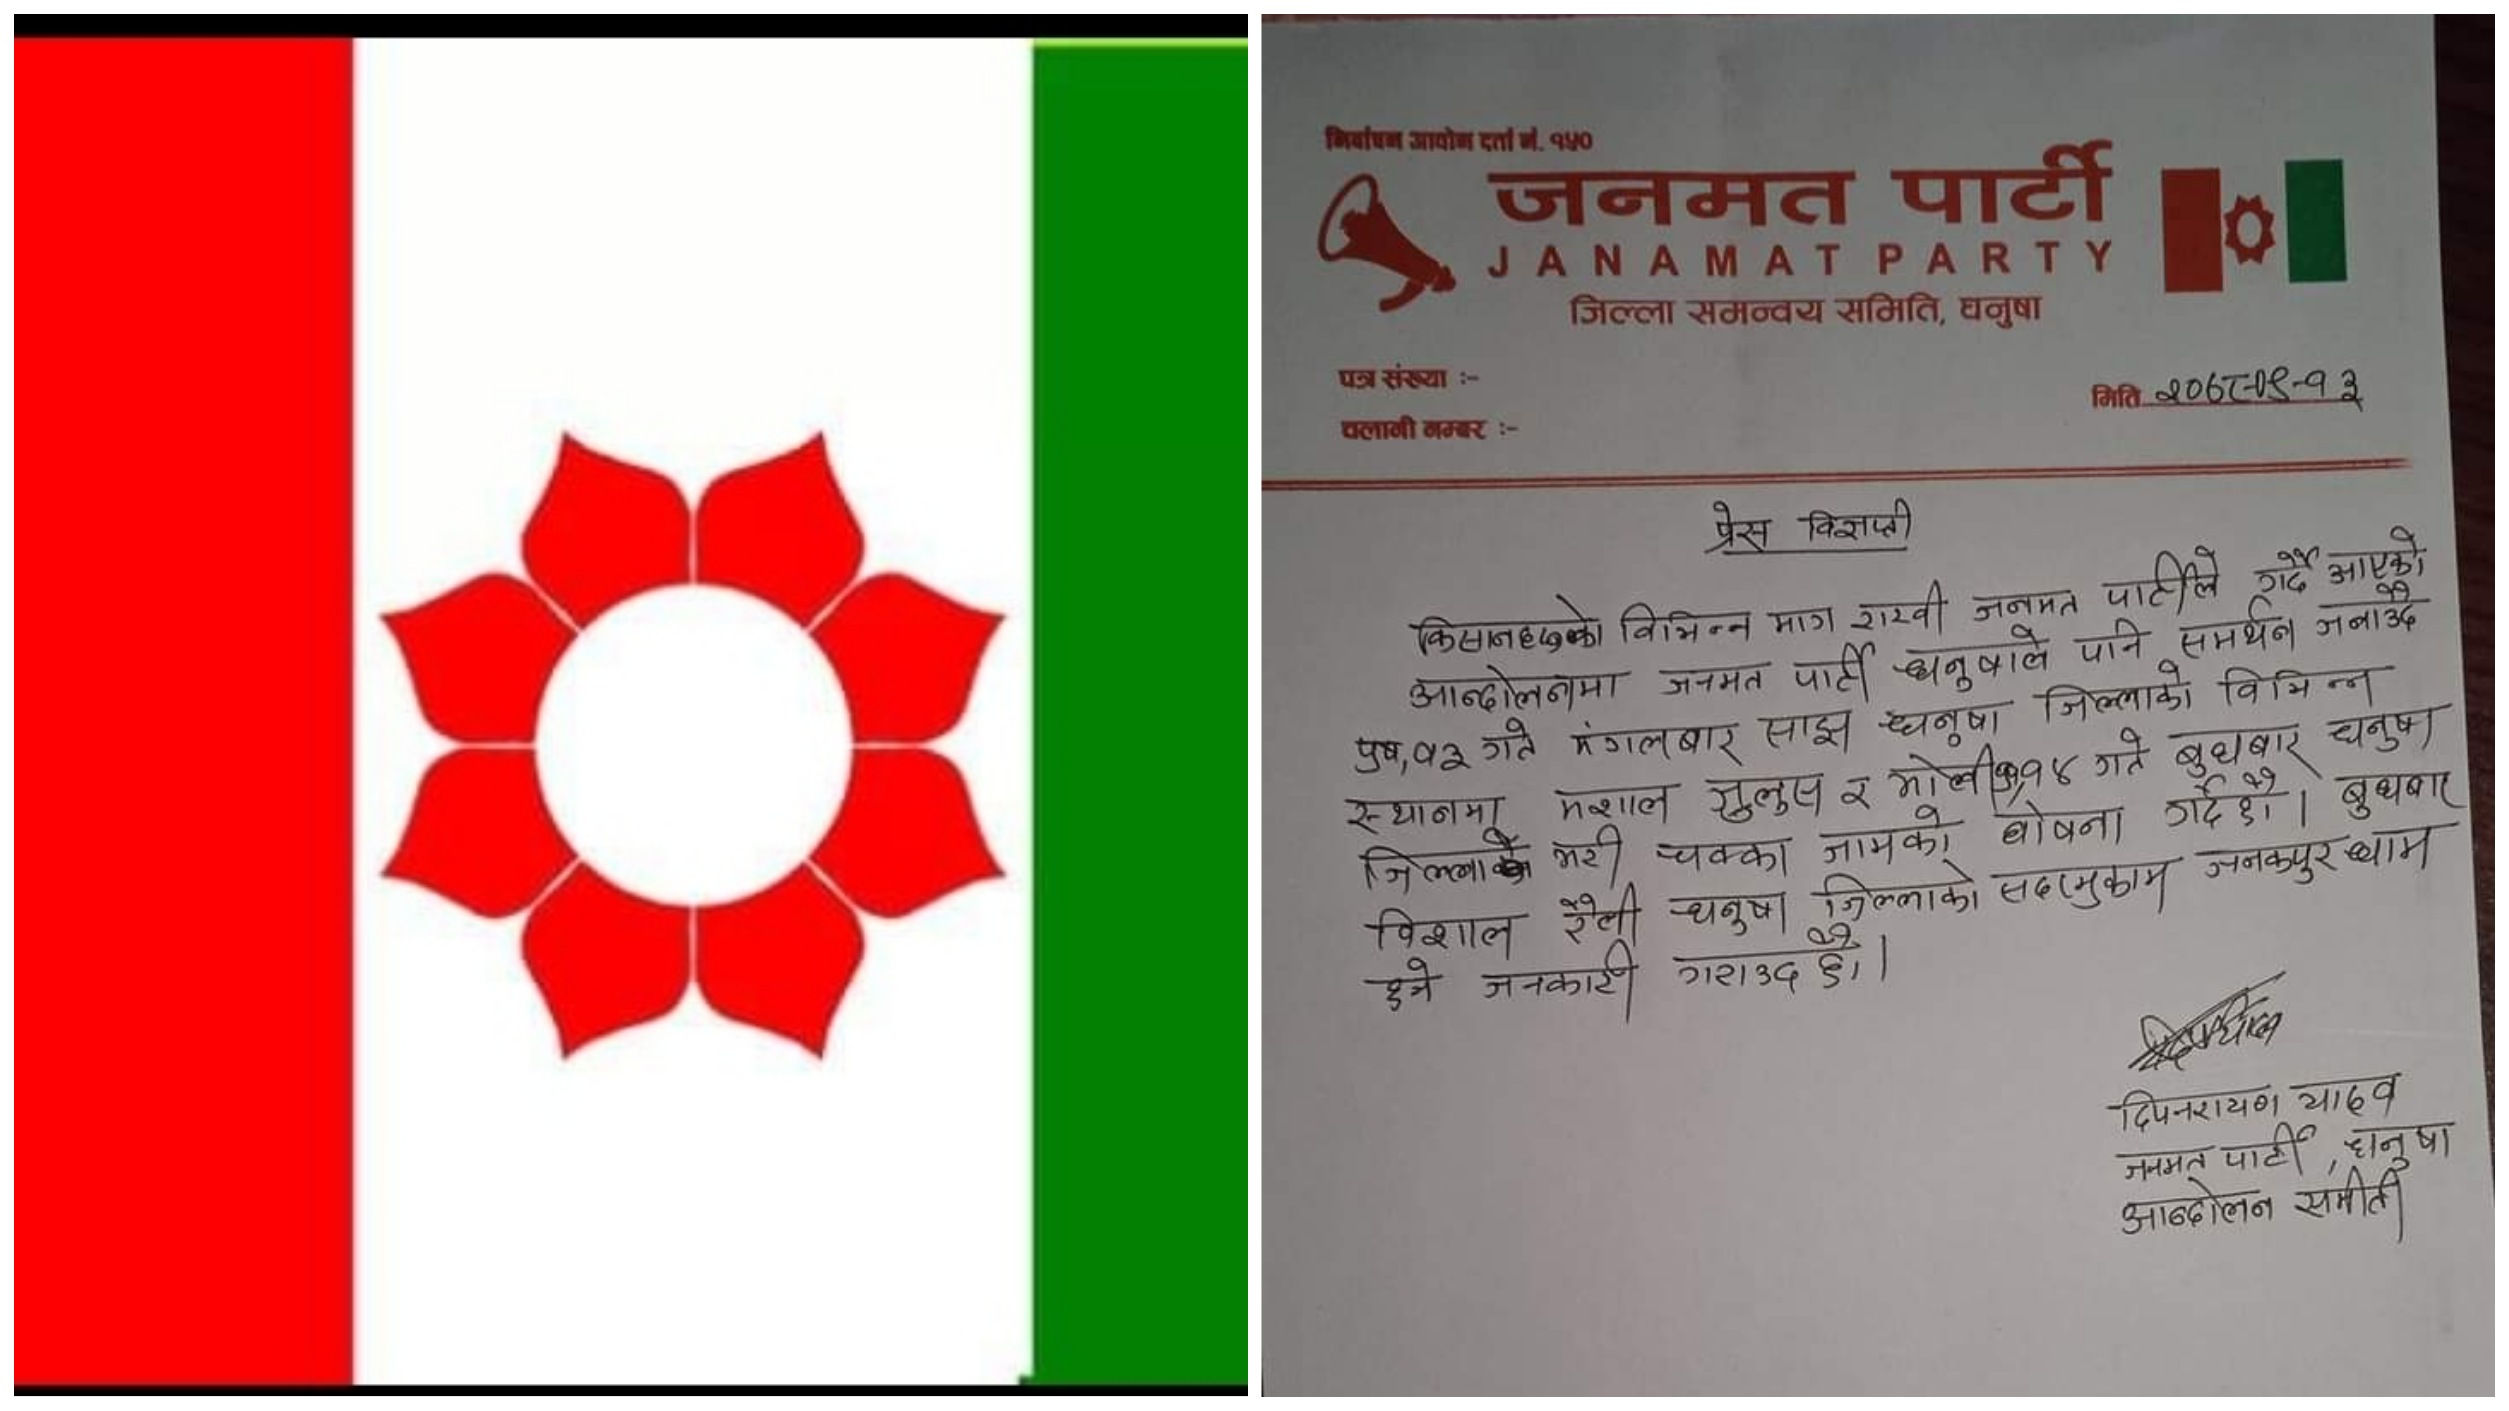 निर्वाचन आयोग दर्ता नं. १५०
जनमत पार्टी
JANAMAT PARTY
जिल्ला समन्वय समिति, धनुषा
पत्र संख्या :-
मिति २०७८-०९-१३
चलानी नम्बर :-
प्रेस विज्ञप्ती
किसानहरुको विभिन्न माग राखी जनमत पार्टीले गर्दै आएको
आन्दोलनमा जनमत पार्टी धनुषाले पनि समर्थन जनाउदै
पुष,१३ गते मंगलबार साझ धनुषा जिल्लाको विभिन्न
स्थानमा मशाल जुलुस र भोली १४ गते बुधबार धनुषा
जिल्ला भरी चक्का जामको घोषना गर्दछौ। बुधबार
विशाल रैली धनुषा जिल्लाको सदरमुकाम जनकपुर धाम
हुने जनकारी गराउदछौ।
दिपनरायण यादव
जनमत पार्टी, धनुषा
आन्दोलन समीती